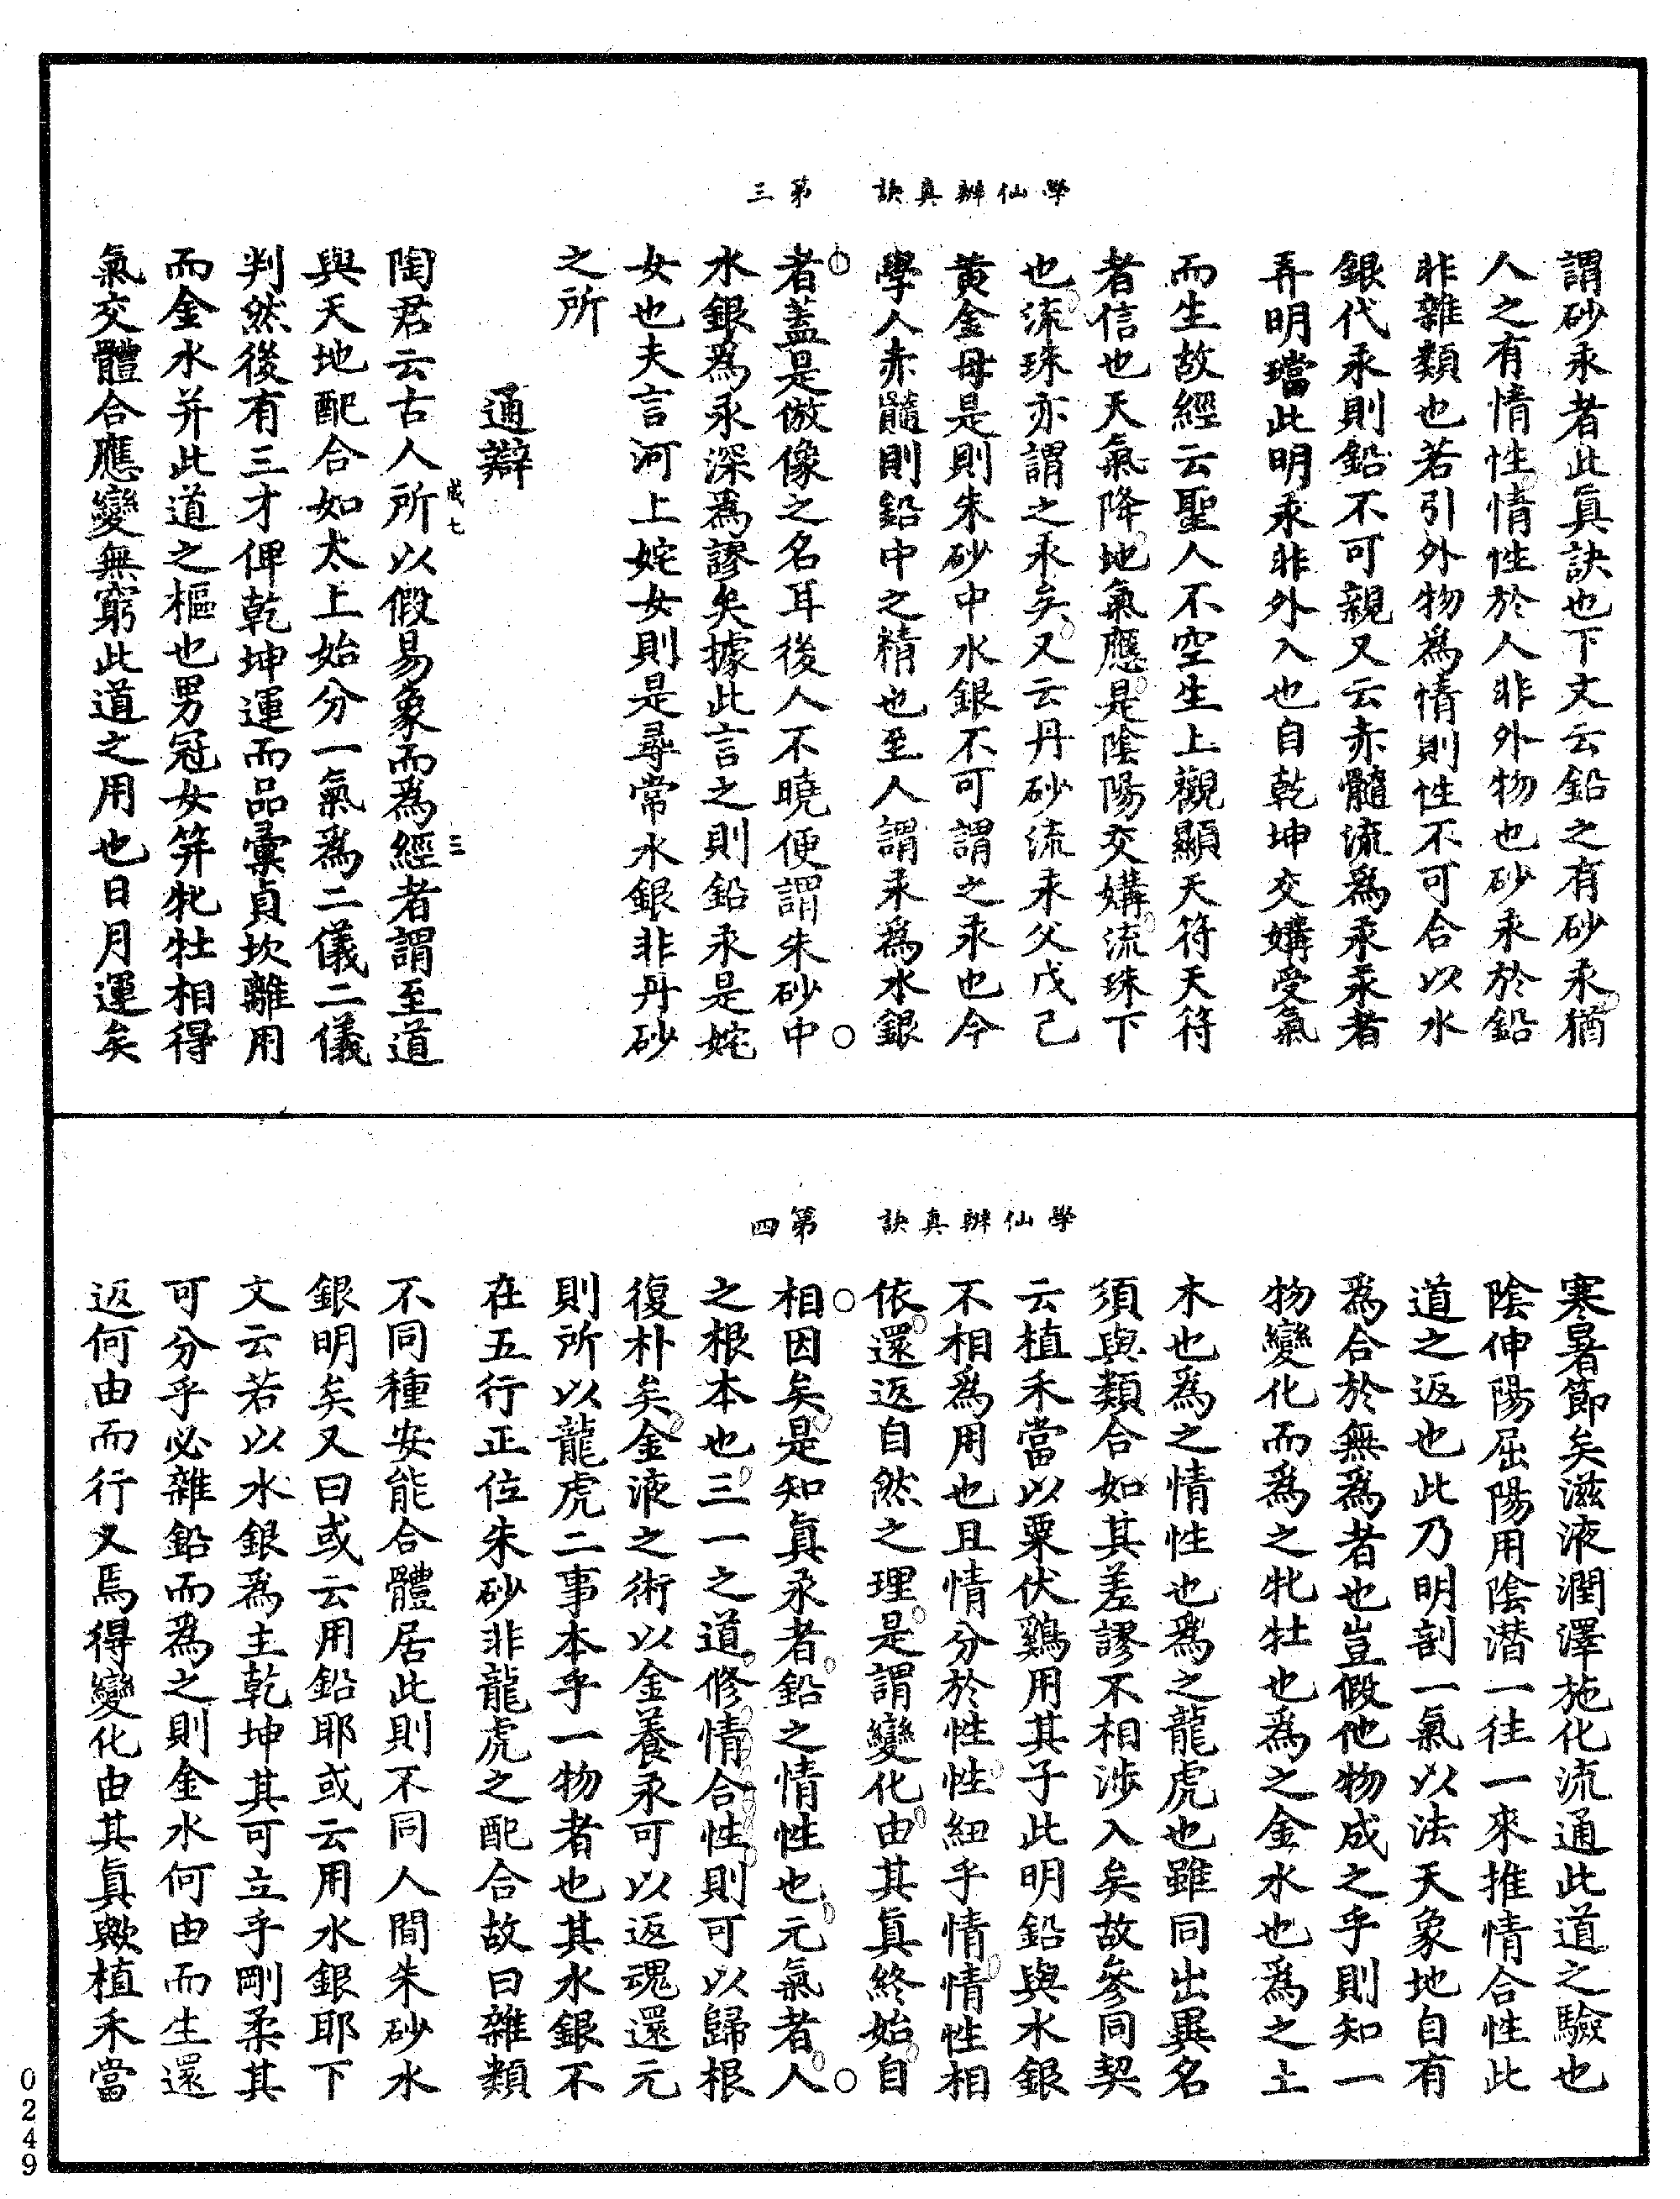 學仙辨真訣　第三
謂砂汞者此真訣也下文云鉛之有砂汞猶
人之有情性情性於人非外物也砂汞於鉛
非雜類也若引外物為情則性不可合以水
銀代汞則鉛不可親又云赤髓流為汞汞者
弄明璫此明汞非外入也自乾坤交媾受氣
而生故經云聖人不空生上觀顯天符天符
者信也天氣降地氣應是陰陽交媾流珠下
也流珠亦謂之汞矣又云丹砂流汞父戊己
黃金母是則朱砂中水銀不可謂之汞也今
學人赤髓則鉛中之精也至人謂汞為水銀
者蓋是倣像之名耳後人不曉便謂朱砂中
水銀為汞深為謬矣據此言之則鉛汞是姹
女也夫言河上姹女則是尋常水銀非丹砂
之所
通辯
陶君云古人所以假易象而為經者謂至道
咸七
三
與天地配合如太上始分一氣為二儀二儀
判然後有三才俾乾坤運而品彙貞坎離用
而金水并此道之樞也男冠女笄牝牡相得
氣交體合應變無窮此道之用也日月運矣
學仙辨真訣　第四
寒暑節矣滋液潤澤施化流通此道之驗也
陰伸陽屈陽用陰潛一往一來推情合性此
道之返也此乃明剖一氣以法天象地自有
為合於無為者也豈假他物成之乎則知一
物變化而為之牝牡也為之金水也為之土
木也為之情性也為之龍虎也雖同出異名
須與類合如其差謬不相涉入矣故參同契
云植禾當以粟伏鷄用其子此明鉛與水銀
不相為用也且情分於性性紐乎情情性相
依還返自然之理是謂變化由其真終始自
相因矣是知真汞者鉛之情性也元氣者人
之根本也三一之道修情合性則可以歸根
復朴矣金液之術以金養汞可以返魂還元
則所以龍虎二事本乎一物者也其水銀不
在五行正位朱砂非龍虎之配合故曰雜類
不同種安能合體居此則不同人間朱砂水
銀明矣又曰或云用鉛耶或云用水銀耶下
文云若以水銀為主乾坤其可立乎剛柔其
可分乎必雜鉛而為之則金水何由而生還
返何由而行又焉得變化由其真歟植禾當
0249